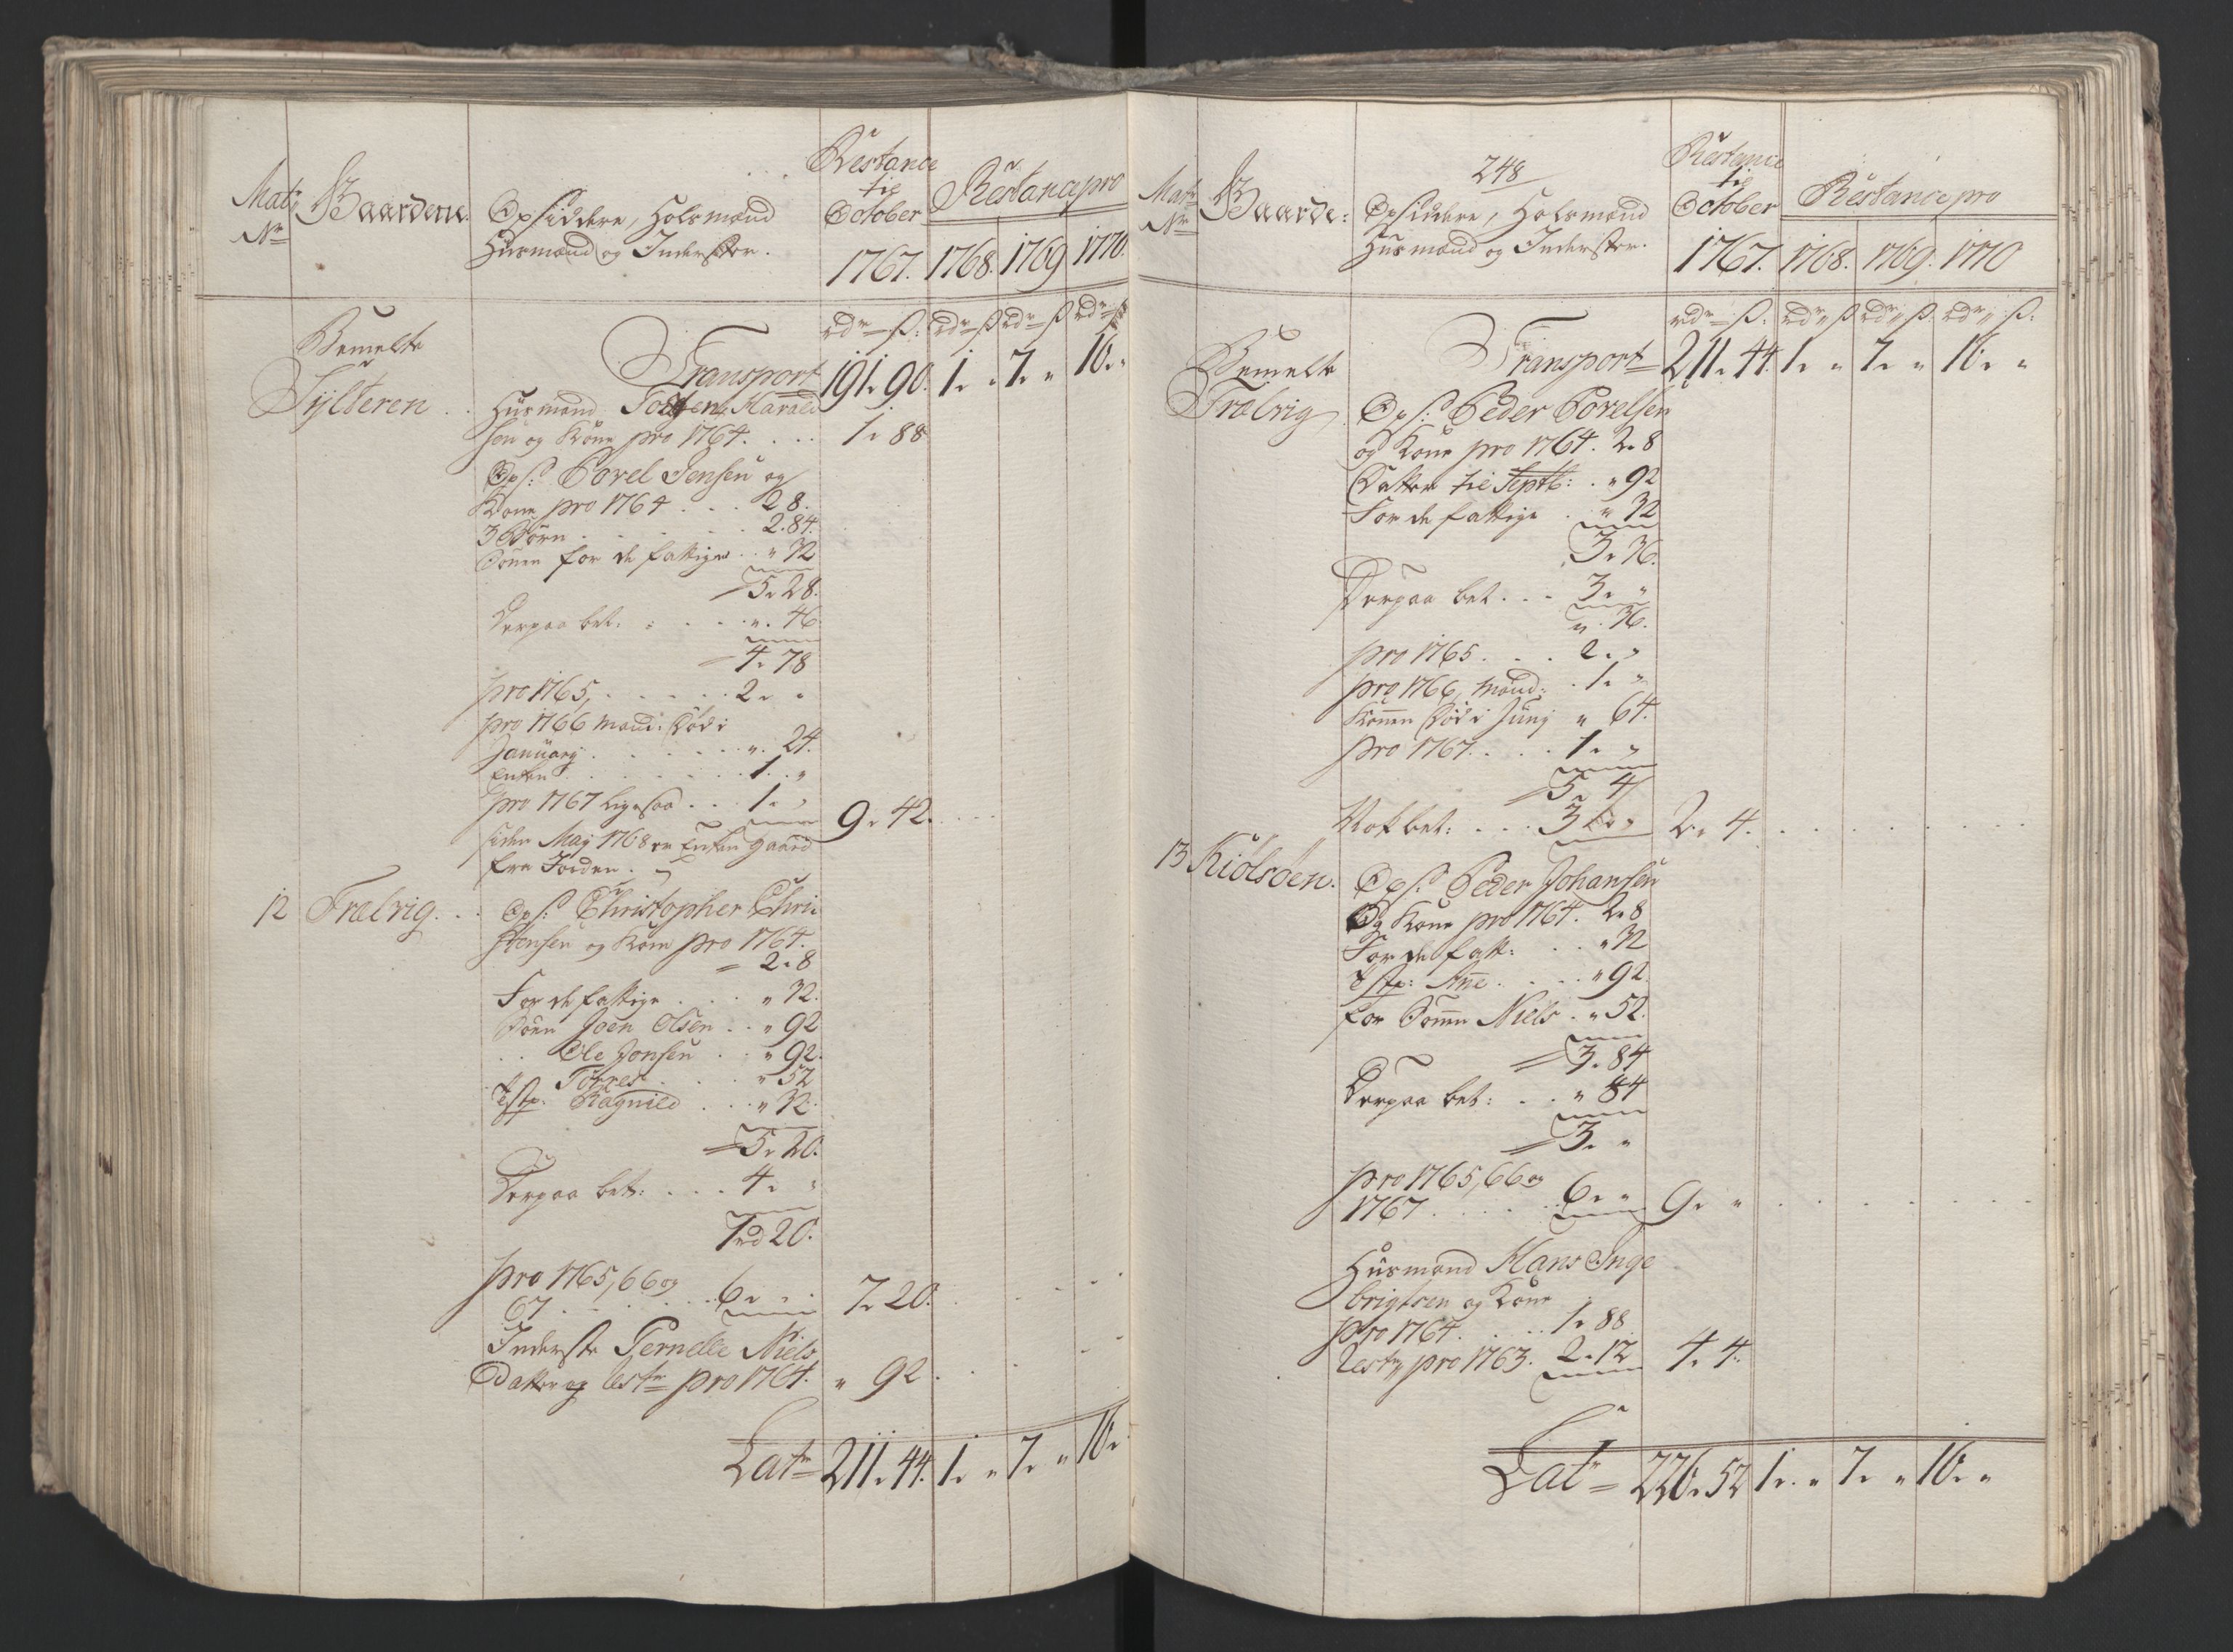 Restance
til
Mat: Gaardene. Opsiddere, Holsmænd October Restance pro
No Huusmænd og Inderster. 1767. 1768. 1769 1770.
rdr ß: rdr ß rdr ß rdr ß
Bemelte Transport 191 " 90. 1 " " 7 " " 16 " "
Sylteren . . Huusmand Harald
sen og Kone pro 1764. . . . 1 " 88
Ops: Povel Jensen og
Kone pro 1764 . . . 2 8.
3 Børn . . . . . 2. 84.
for de fattige . . " 32
5 " 28.
Derpaa bet: . . . . ". 46
4 " 78
pro 1765, . . . . . 2 " "
pro 1766 Mand: Død i
January . . . . . ". 24.
Enken . . . . . . 1. . "
pro 1767 ligesaa . . 1 " " 9 " 42. . . .
siden May 1768 er Enken gaaed
fra Jorden.
12 Frælvig. . . Ops: Christopher Chri
stensen og Kone pro 1764.
= 2 " 8
For de fattige . . . " 32.
Søn Joen Olsen . . " 92
. . Ole Jonsen . . " 92.
" Torres . . . . " 52
Tstp. Ragnild . . . " 32.
5 " 20.
Derpaa bet: . . . 4 " "
1 rd 20.
pro 1765, 66 og
67 . . . . . . 6 " " 7 " 20. . . .
Inderste Pernelle Niels
Datter og rest pro 1764. " 92 . . .
Lat = 211 " 44. 1 " " 7 " " 16 "
248
Restance
til
Mat: Gaarde: Opsiddere, Holsmænd October Restance pro
No Huusmænd og Inderster. 1767. 1768. 1769. 1770
rdr ß: rdr " ß rdr " ß. rdr " ß.
Bemelte Transport 211 " 44. 1 " " 7 " " 16 " "
Frælvig Ops: Peder Povelsen
og Kone pro 1764. 2 " 8
Datter til Septb: . " 92
For de fattige . " 32
3 " 36.
Derpaa bet . . . 3 " "
" . 36.
pro 1765 . . . 2 . "
pro 1766, Mand: . 1 " "
Konen Død i Junj " 64.
pro 1767. . . . 1 " "
5 " 4
Nok bet: . . . 3 " " 2 " 4. . . . .
13 Kiölsöen. Ops: Peder Johansen
Og Kone pro 1764. 2 " 8
For de fatt: . . " 32
Tstp: Ane . . . . " 92
for Sønn Niels . " 52.
3 " 84
Derpaa bet: . . " 84
3 " "
pro 1765, 66 og
1767 . . . . . 6 " " 9 " " . . . .
Huusmand Hans Inge
brigtsen og Kone
pro 1764. . . . . 1 " 88
Rest " pro 1763. 2 " 12 4 " 4.
Lat = 226 " 52 1 " " 7 " " 16 " "